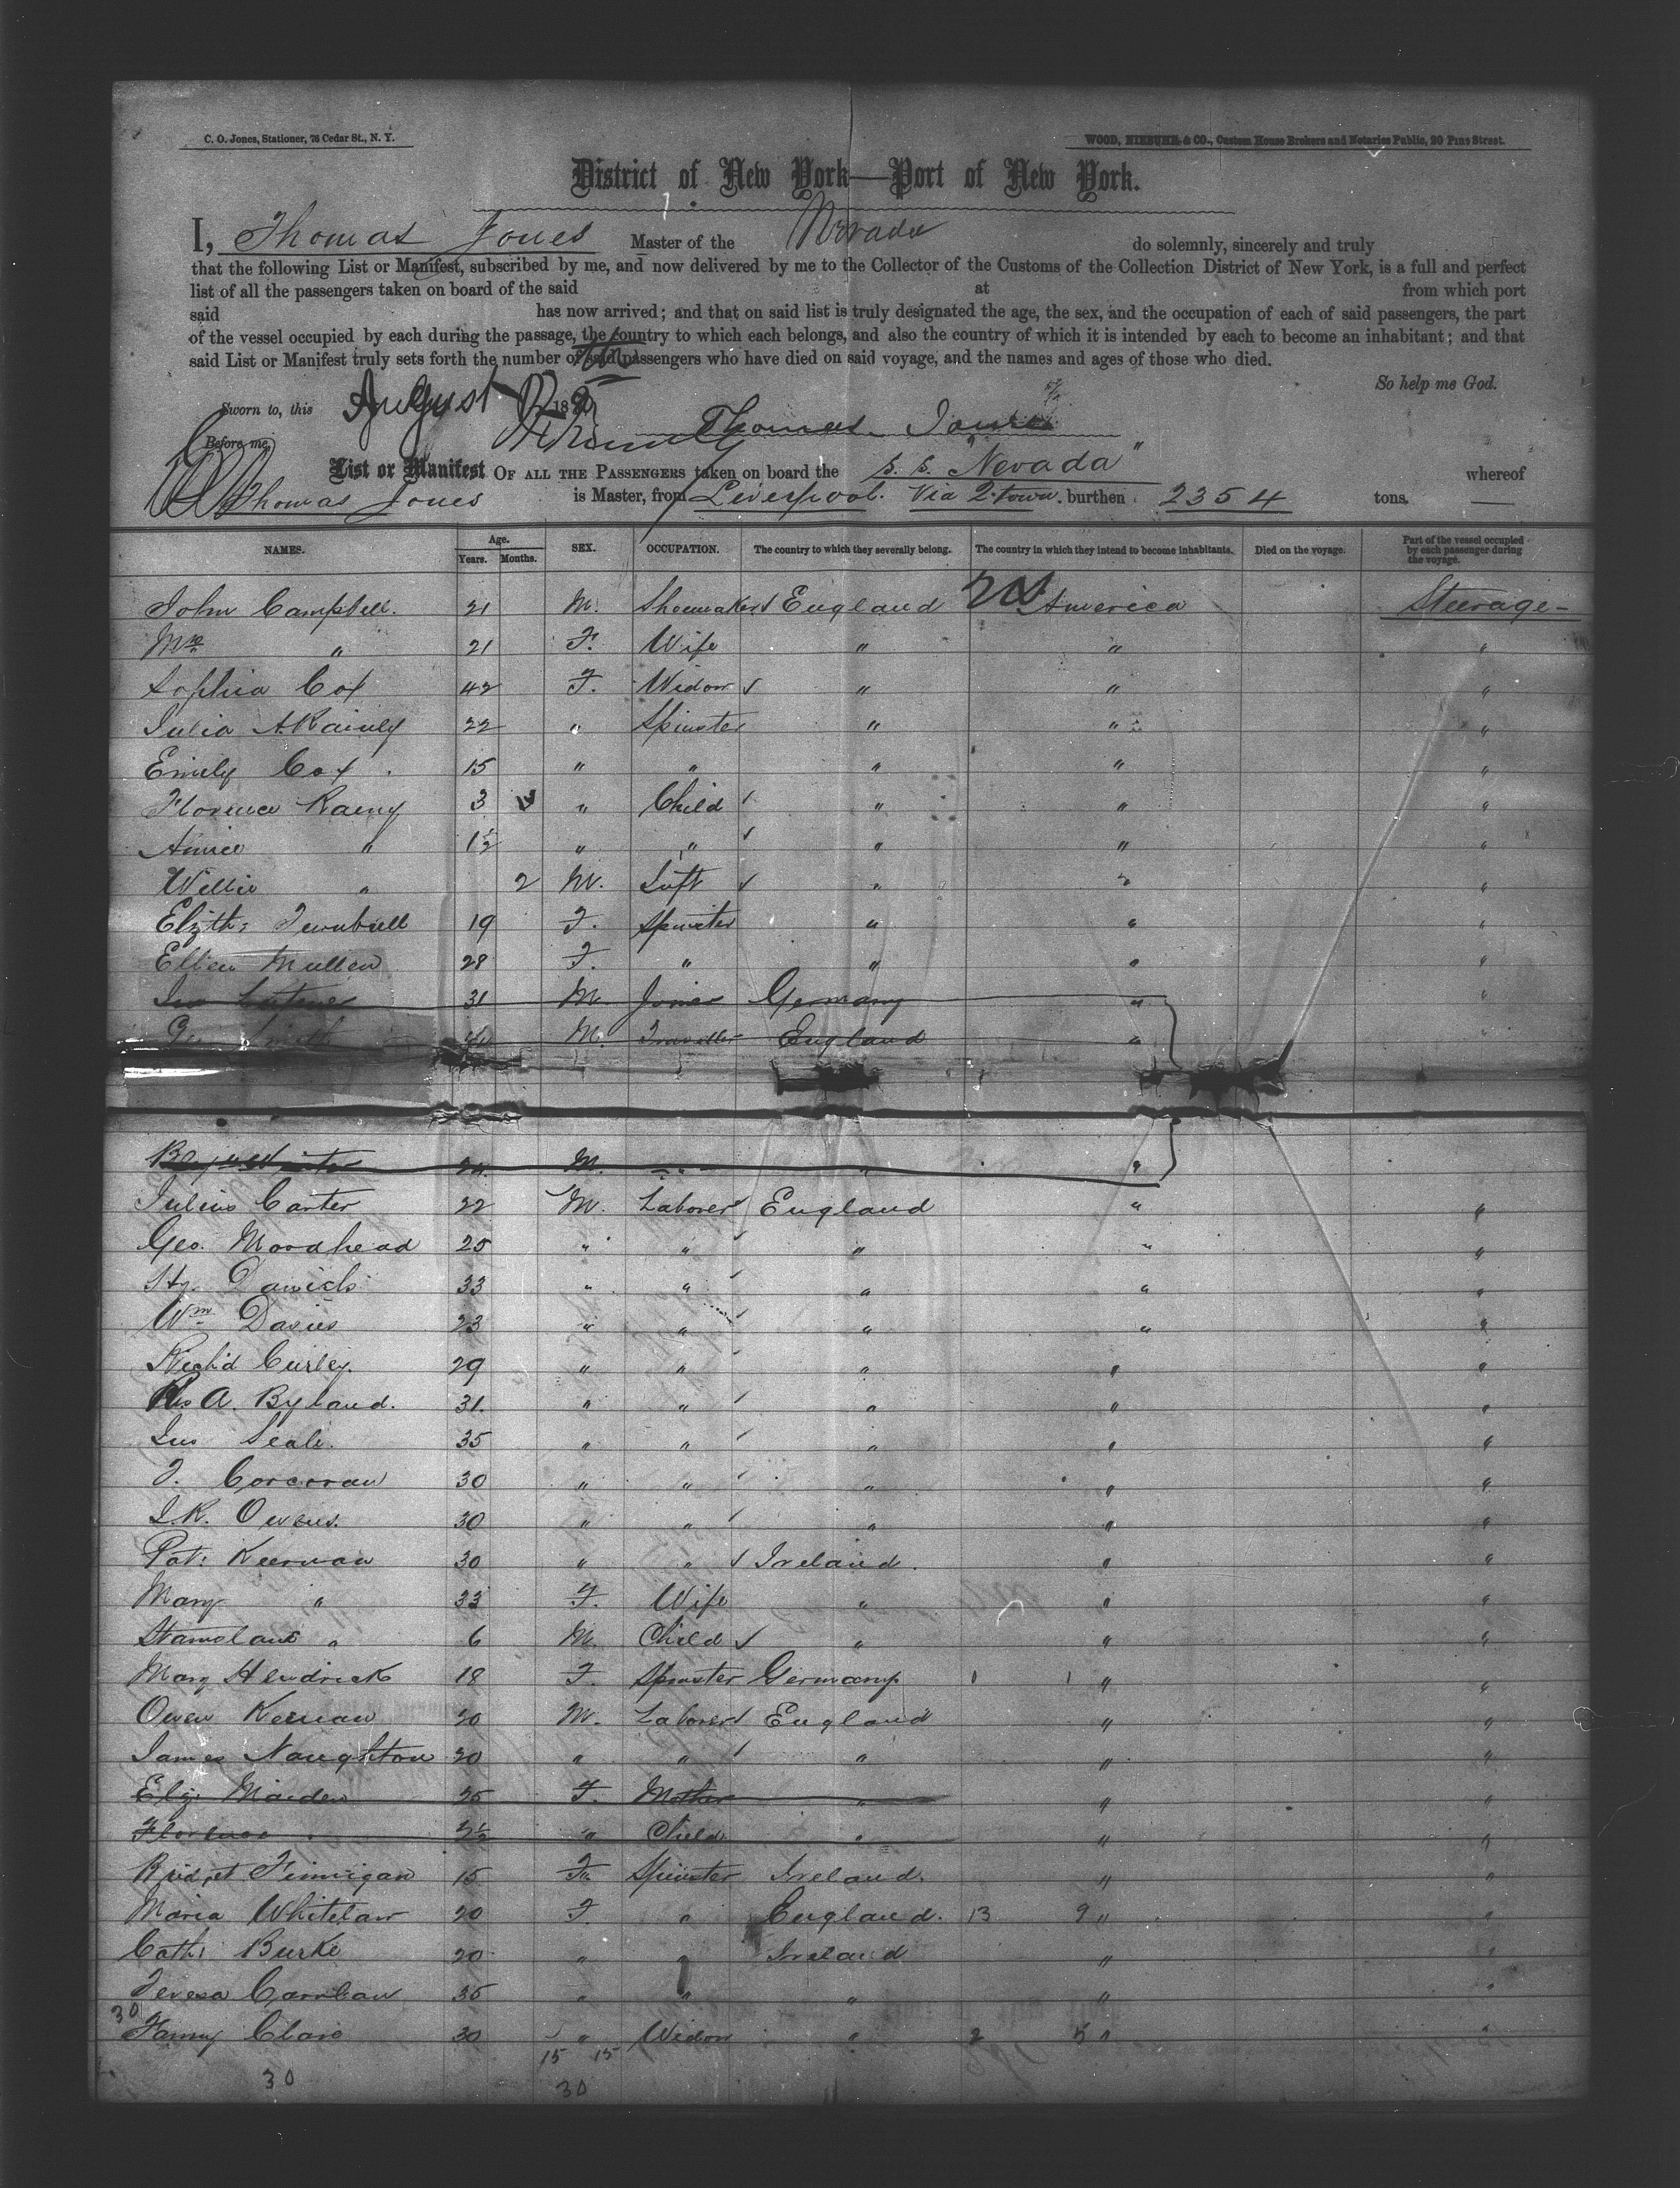 C. O. Jones, Stationer, 76 Cedar St., N. Y.
WOOD, NIEBUHR & CO., Custom House Brokers and Notaries Public, 20 Pine Street.
District of New York—Port of New York.
I, Thomas Jones Master of the Nevada do solemnly, sincerely and truly
that the following List or Manifest, subscribed by me, and now delivered by me to the Collector of the Customs of the Collection District of New York, is a full and perfect
list of all the passengers taken on board of the said at from which port
said has now arrived; and that on said list is truly designated the age, the sex, and the occupation of each of said passengers, the part
of the vessel occupied by each during the passage, the country to which each belongs, and also the country of which it is intended by each to become an inhabitant; and that
said List or Manifest truly sets forth the number of said passengers who have died on said voyage, and the names and ages of those who died.
So help me God.
Sworn to, this August 18
Thomas Jones
Before me,
List or Manifest OF ALL THE PASSENGERS taken on board the S. S. "Nevada" whereof
Thomas Jones is Master, from Liverpool. via Q.town. burthen 2354 tons.
NAMES. Age. Years. Months. SEX. OCCUPATION. The country to which they severally belong. The country in which they intend to become inhabitants. Died on the voyage. Part of the vessel occupied by each passenger during the voyage.
John Campbell. 21 M. Shoemaker England US America Steerage
Mrs " 21 F. Wife " " "
Sophia Cox 42 F. Widow " " "
Julia A. 22 " Spinster " " "
Emily Cox. 15 " " " " "
Florence Rainy 3 " Child " " "
" 1½ " " " " "
Willie " 2 M. Inft " " "
Elizth: Turnbull 19 F. Spinster " " "
Ellen Mullen 28 F. " " " "
31 M. Joiner Germany " "
Smith M. Traveller England " "
M. " " "
Julius Carter 22 M. Laborer England " "
Geo. Moodhead 25 " " " " "
Hy. Daniels 33 " " " " "
Wm Davies 23 " " " " "
Rich'd Curley. 29 " " " " "
A. Byland. 31. " " " " "
Seale. 35 " " " " "
T. Corcoran 30 " " " " "
J. R. Owens. 30 " " " " "
Pat: Keernan 30 " " Ireland. " "
Mary " 33 F. Wife " " "
" 6 M. Child " " "
Mary Hendrick 18 F. Spinster Germany 1 1 " "
Owen Keenan 20 M. Laborer England " "
James Naughton 20 " " " " "
Eliz: Maiden 25 F. Mother " " "
Florence " 2½ " Child " " "
Bridget Finnigan 15 F. Spinster Ireland. " "
Maria Whitelaw 20 F. " England. 13 9 " "
Cath: Burke 20 " " Ireland " "
Teresa 35 " " " " "
30
Fanny Clare 30 " Widow " 2 5 " "
15 15
30 30